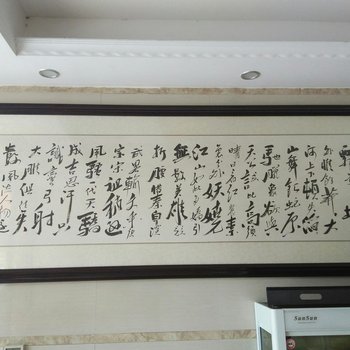 外惟餘莽莽大
河上下頓失滔
滔山舞銀蛇原
馳臘象欲與
天公試比高須
晴日看紅裝素
裹分外妖嬈
江山如此多嬌引
無數英雄競
折腰惜秦皇漢
武略輸文采唐
宗宋祖稍遜
風騷一代天驕
成吉思汗只
識彎弓射
大雕俱往矣
數風流人物還
SunSun